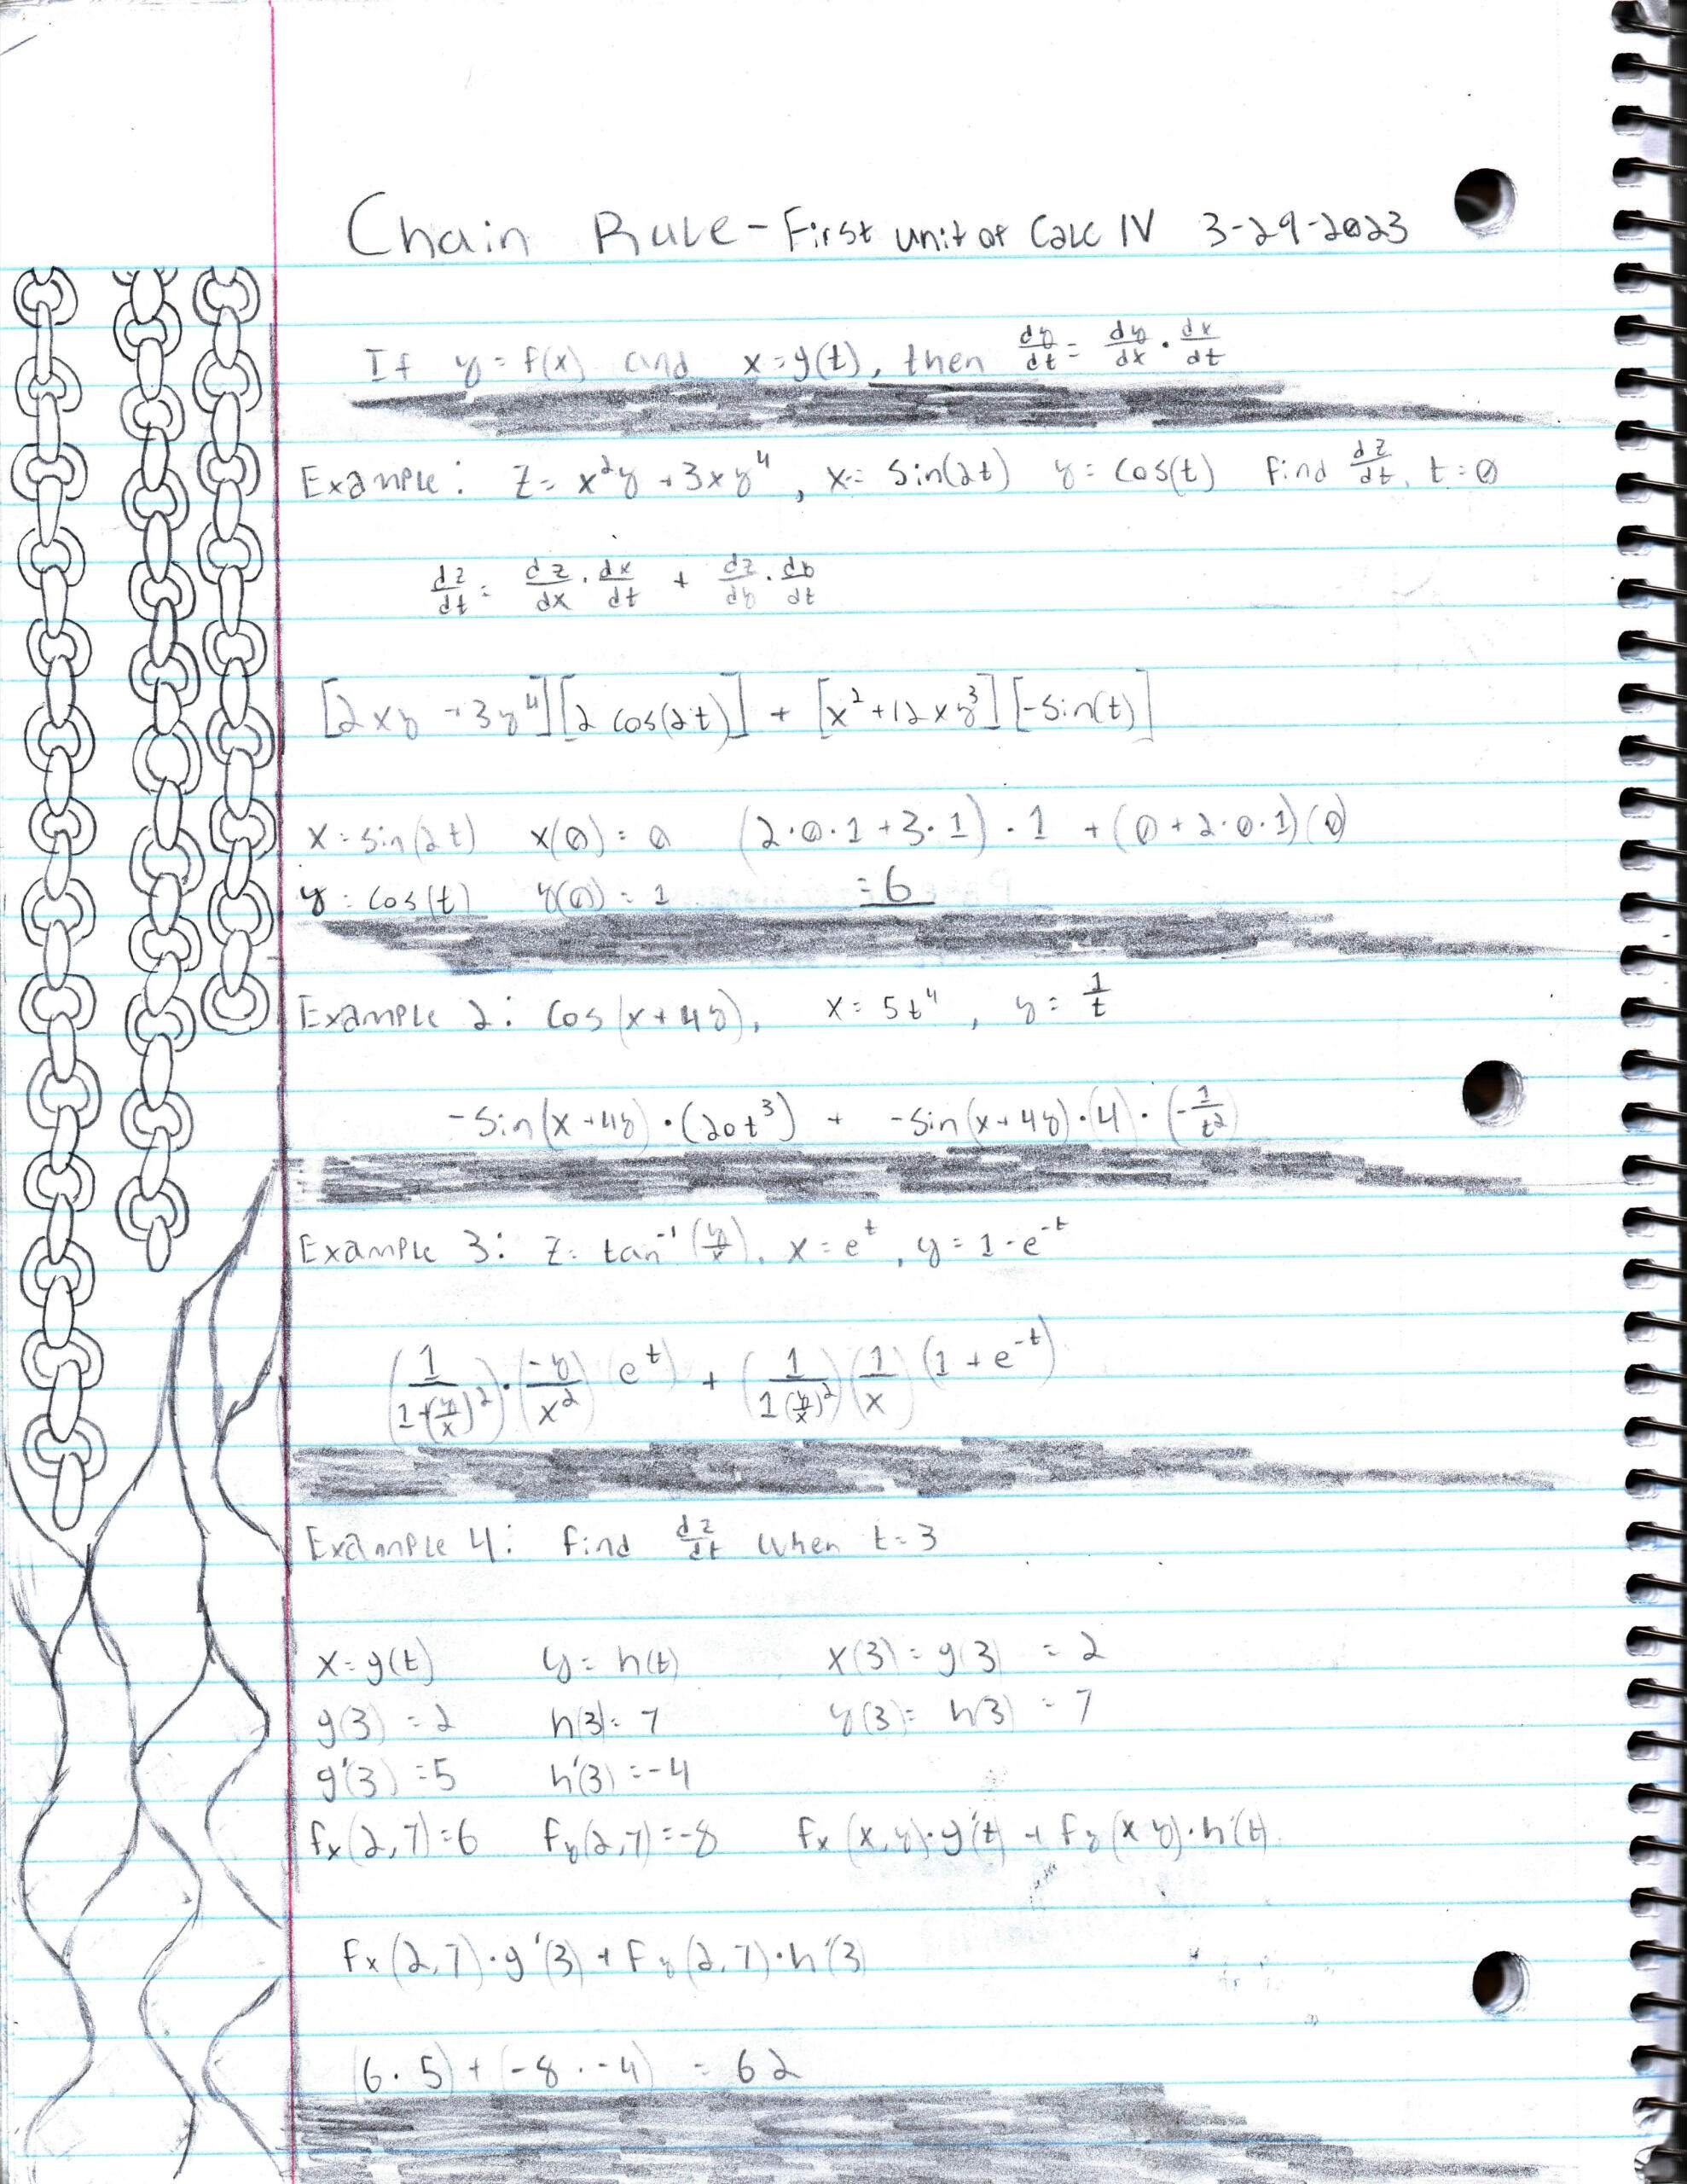 Chain Rule - First unit of Calc IV 3-29-2023
If y = f(x) and x = g(t), then dy/dt = dy/dx · dx/dt
Example: z = x²y + 3xy⁴, x = sin(2t) y = cos(t) find dz/dt, t = 0
dz/dt = dz/dx · dx/dt + dz/dy · dy/dt
[2xy + 3y⁴][2 cos(2t)] + [x² + 12xy³][-sin(t)]
x = sin(2t) x(0) = 0 (2·0·1 + 3·1) · 1 + (0 + 2·0·1)(0)
y = cos(t) y(0) = 1 = 6
Example 2: cos(x + 4y), x = 5t⁴, y = 1/t
-sin(x + 4y) · (20t³) + -sin(x + 4y) · (4) · (-1/t²)
Example 3: z = tan⁻¹(y/x), x = eᵗ, y = 1 - e⁻ᵗ
(1/(1+(y/x)²)) · (-y/x²) (eᵗ) + (1/(1(y/x)²)) (1/x) (1 + e⁻ᵗ)
Example 4: find dz/dt when t = 3
x = g(t) y = h(t) x(3) = g(3) = 2
g(3) = 2 h(3) = 7 y(3) = h(3) = 7
g'(3) = 5 h'(3) = -4
fx(2,7) = 6 fy(2,7) = -8 fx(x,y) · g'(t) + fy(x y) · h'(t)
fx(2,7) · g'(3) + fy(2,7) · h'(3)
(6 · 5) + (-8 · -4) = 62